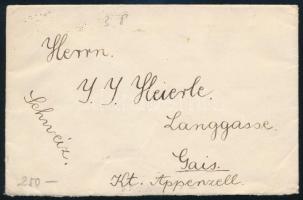 3 8
Herrn.
J. J. Heierle.
Langgasse.
Gais.
Kt. Appenzell.
Schweiz.
250 —